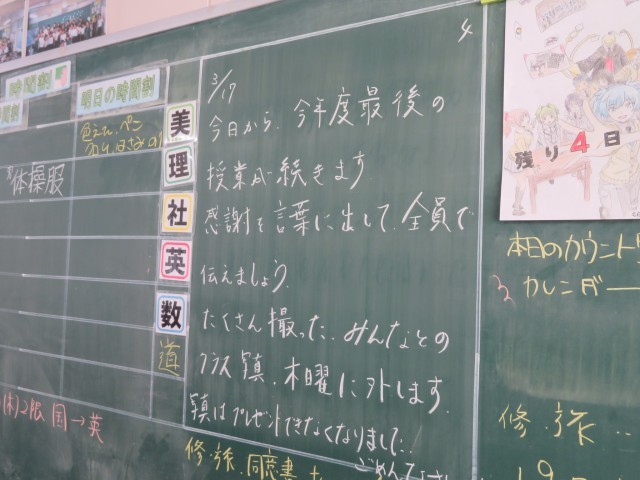 時間割
明日の時間割
体操服
(木)2限 国→英
美
理
社
英
数
道
4
3/17
今日から、今年度最後の
授業が続きます
感謝を言葉に出して、全員で
伝えましょう。
たくさん撮った、みんなとの
クラス写真、木曜に外します。
写真はプレゼントできなくなりまして..
ごめんなさい
修・旅、同意書
残り4日
本日のカウント
カレンダー
修・旅...